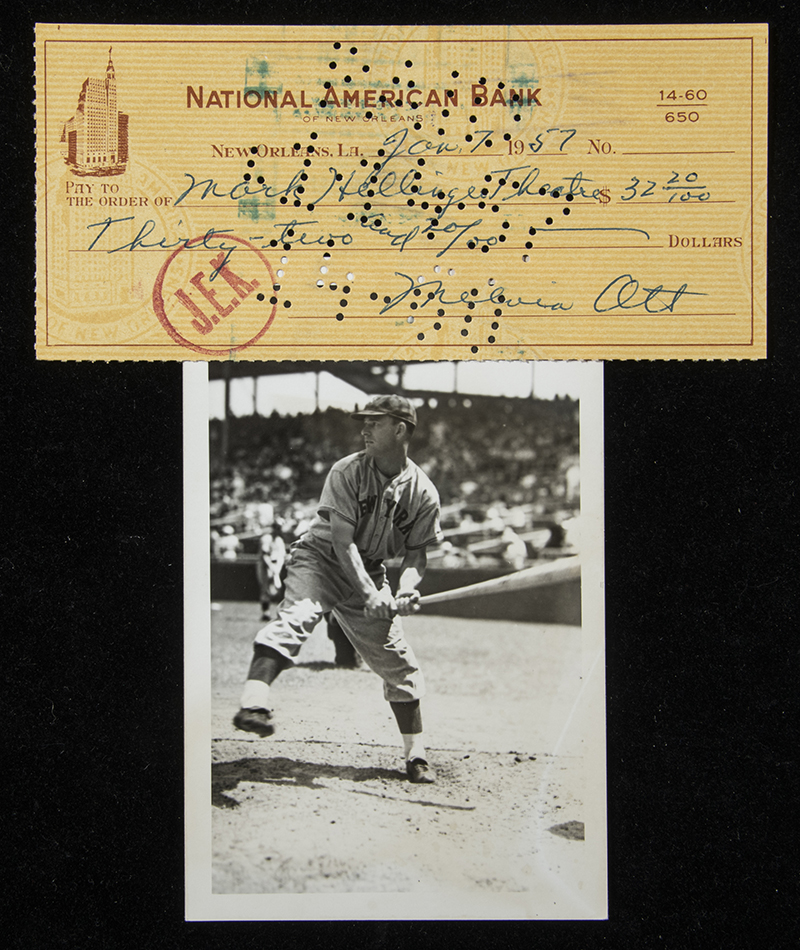 NATIONAL AMERICAN BANK
OF NEW ORLEANS
14-60
650
NEW ORLEANS, LA. Jan. 7 1957 No.
PAY TO
THE ORDER OF Mark Hellinger Theatre $ 32 20/100
Thirty-two and 20/00 DOLLARS
J.E.K.
Melvin Ott
NEW YORK